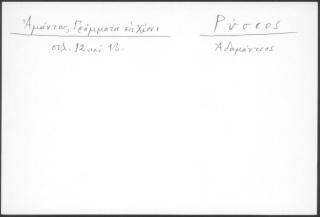 Ἀμάντου, Γράμματα εἰς Χίον
σελ. 12 καί 13.
Ρύσιος
Ἀδαμάντιος